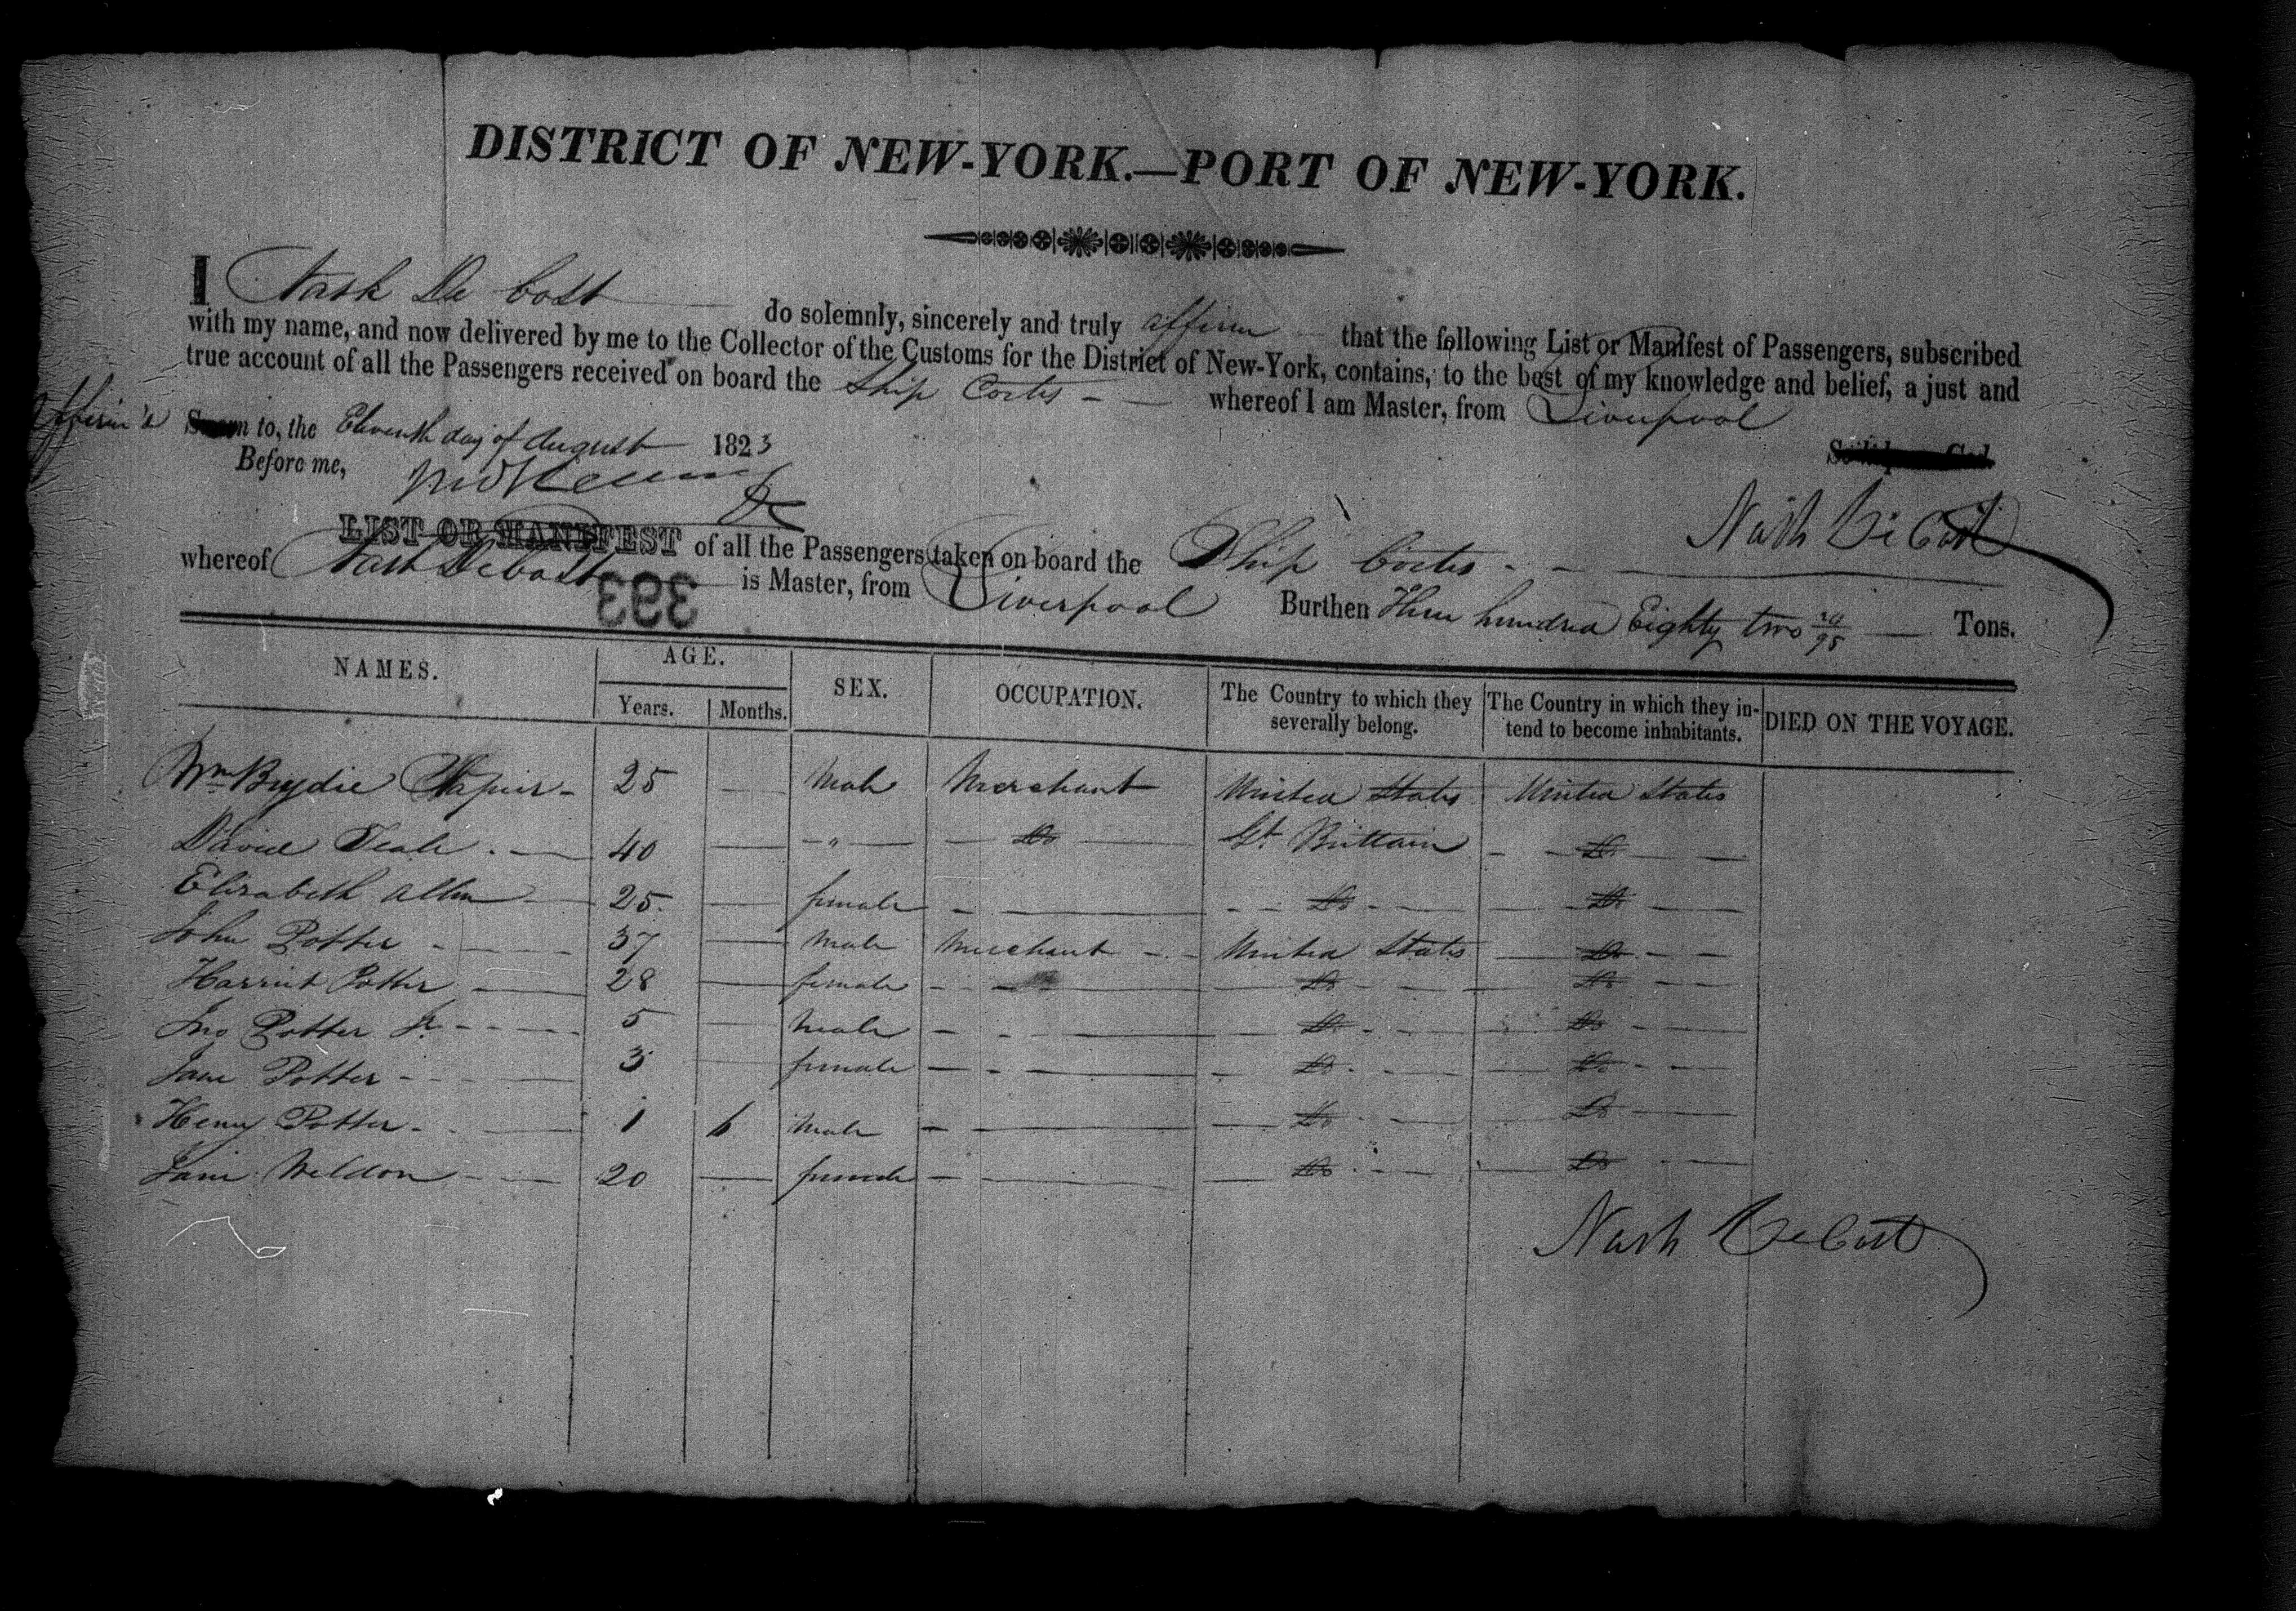 DISTRICT OF NEW-YORK.—PORT OF NEW-YORK.
I Nash De Cost do solemnly, sincerely and truly affirm that the following List or Manifest of Passengers, subscribed
with my name, and now delivered by me to the Collector of the Customs for the District of New-York, contains, to the best of my knowledge and belief, a just and
true account of all the Passengers received on board the Ship Cortes whereof I am Master, from Liverpool
Affirm'd Sworn to, the Eleventh day of August 1823
Before me,
Nash De Cost
LIST OR MANIFEST of all the Passengers taken on board the Ship Cortes
whereof Nash De Cost is Master, from Liverpool Burthen Three hundred Eighty two /95 Tons.
393
NAMES. AGE. Years. Months. SEX. OCCUPATION. The Country to which they severally belong. The Country in which they intend to become inhabitants. DIED ON THE VOYAGE.
Wm Brydie Napier 25 Male Merchant United States United States
David Teale 40 " Do Gt Brittain Do
Elizabeth Allen 25 female Do Do
John Potter 37 Male Merchant United States Do
Harriet Potter 28 female Do Do
Jno Potter Jr 5 Male Do Do
Jane Potter 3 female Do Do
Henry Potter 1 6 Male Do Do
Jane Weldon 20 female Do Do
Nash De Cost